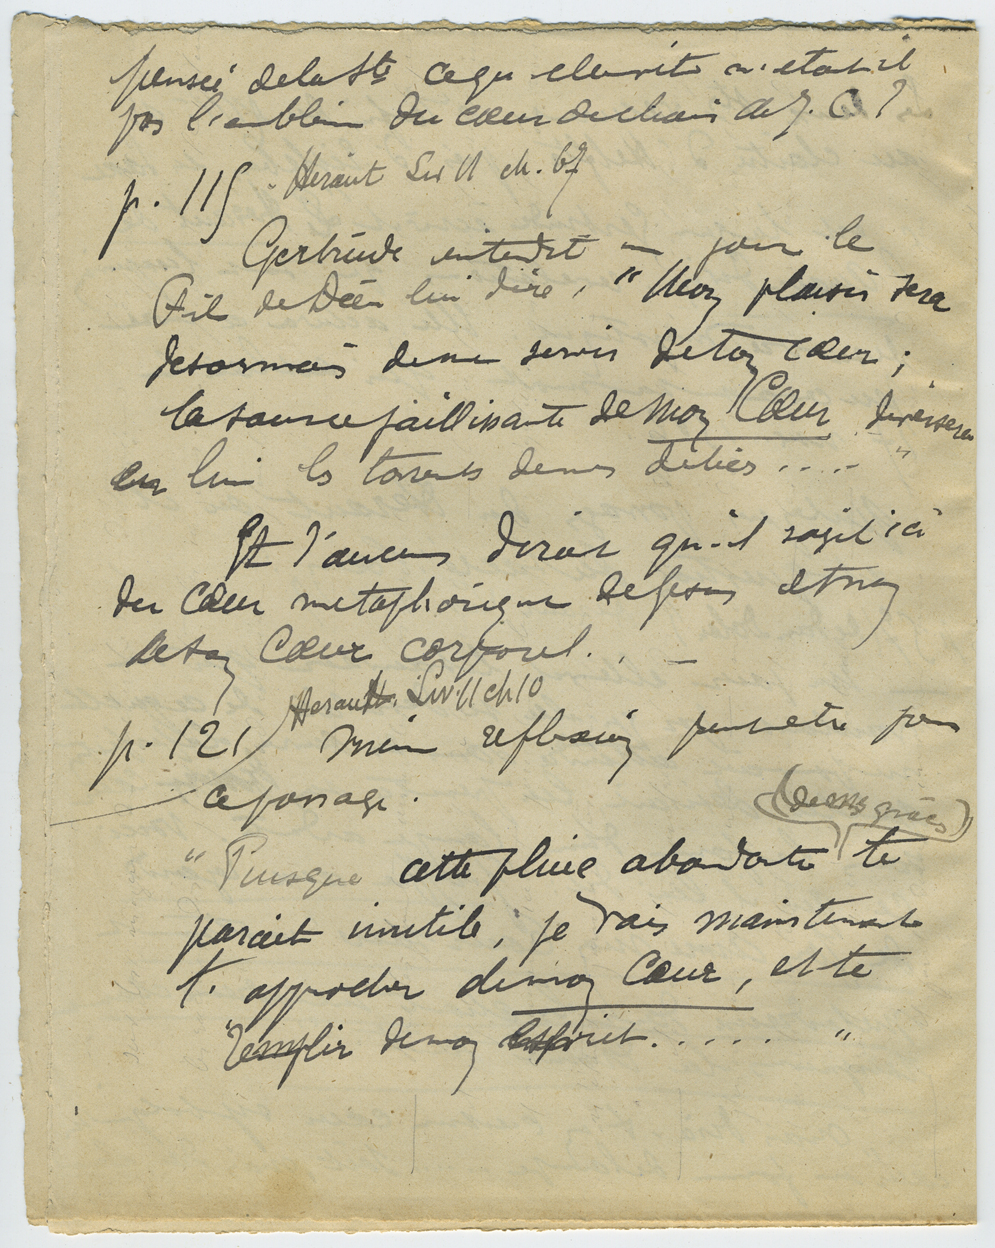 pensée de la Ste ce qu'elle vit n'était-il
pas l'emblème du cœur de chair de J. C. ?
p. 115 Heraut Liv II ch. 67
Gertrude entendit un jour le
Fils de Dieu lui dire, "Mon plaisir sera
desormais de me servir de ton cœur ;
la source jaillissante de mon Cœur deversera
en lui les torrents de mes délices .... "
Et l'auteur dirait qu'il s'agit ici
du Cœur metaphorique de Jesus et non
de son Cœur corporel. . –
Heraut. Liv II ch 10
p. 121) même reflexion peut etre pour
ce passage.
(de mes grâces)
" Puisque cette pluie abondante te
parait inutile, je vais maintenant
t'approcher de mon Cœur, et te
remplir de mon esprit ..... "